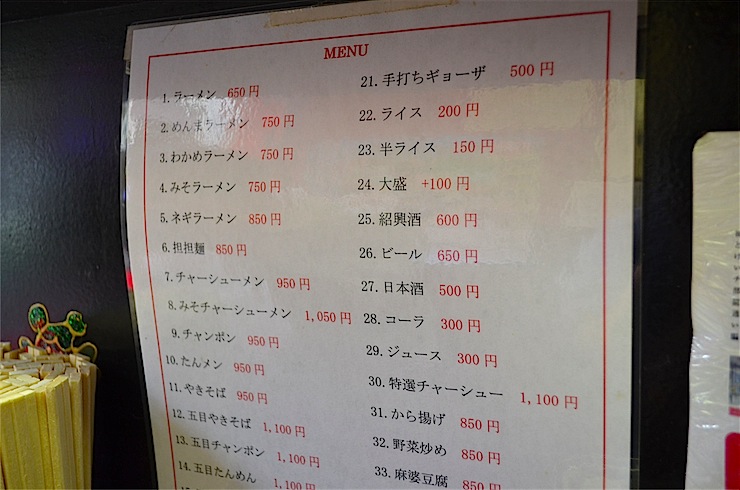 MENU
1.ラーメン 650円
2.めんまラーメン 750円
3.わかめラーメン 750円
4.みそラーメン 750円
5.ネギラーメン 850円
6.担担麺 850円
7.チャーシューメン 950円
8.みそチャーシューメン 1,050円
9.チャンポン 950円
10.たんメン 950円
11.やきそば 950円
12.五目やきそば 1,100円
13.五目チャンポン 1,100円
14.五目たんめん 1,100円
21.手打ちギョーザ 500円
22.ライス 200円
23.半ライス 150円
24.大盛 +100円
25.紹興酒 600円
26.ビール 650円
27.日本酒 500円
28.コーラ 300円
29.ジュース 300円
30.特選チャーシュー 1,100円
31.から揚げ 850円
32.野菜炒め 850円
33.麻婆豆腐 850円